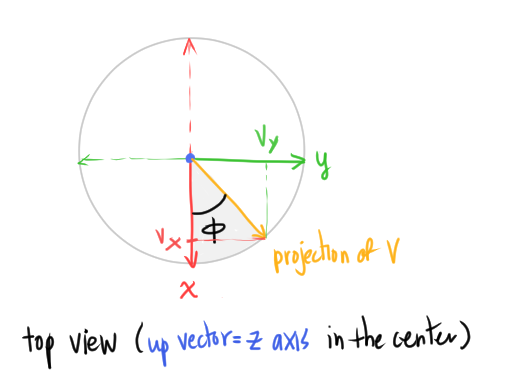 Vy
y
Vx
Φ
projection of V
x
top view (up vector= z axis in the center)